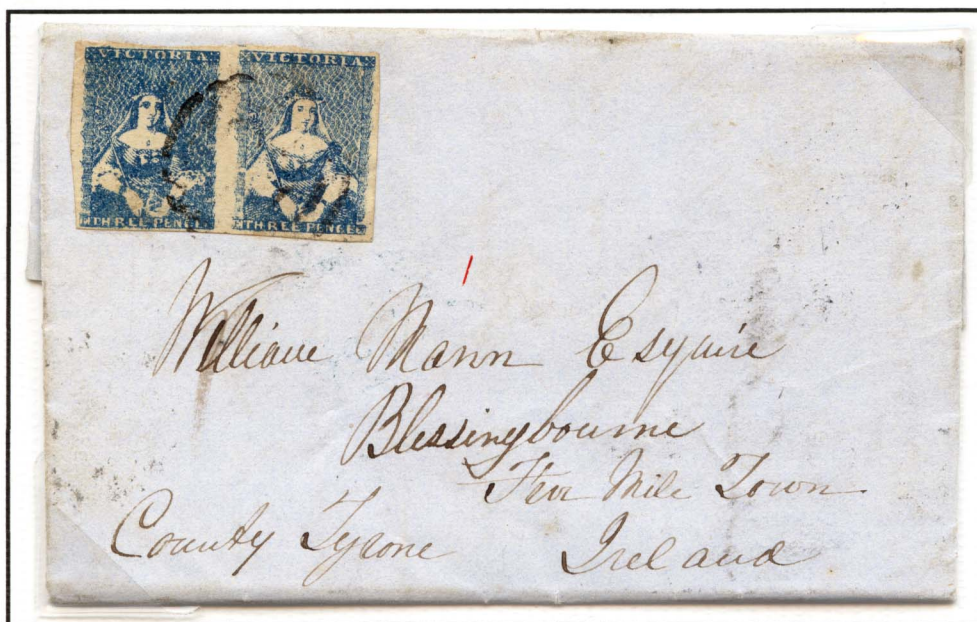 VICTORIA VICTORIA
THREE PENCE THREE PENCE
William Mann Esquire
Blessingbourne
Five Mile Town
County Tyrone Ireland